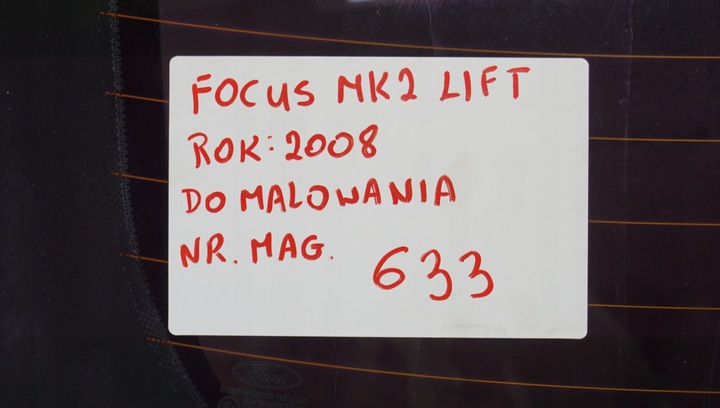 FOCUS MK2 LIFT
ROK: 2008
DO MALOWANIA
NR. MAG. 633
Ford